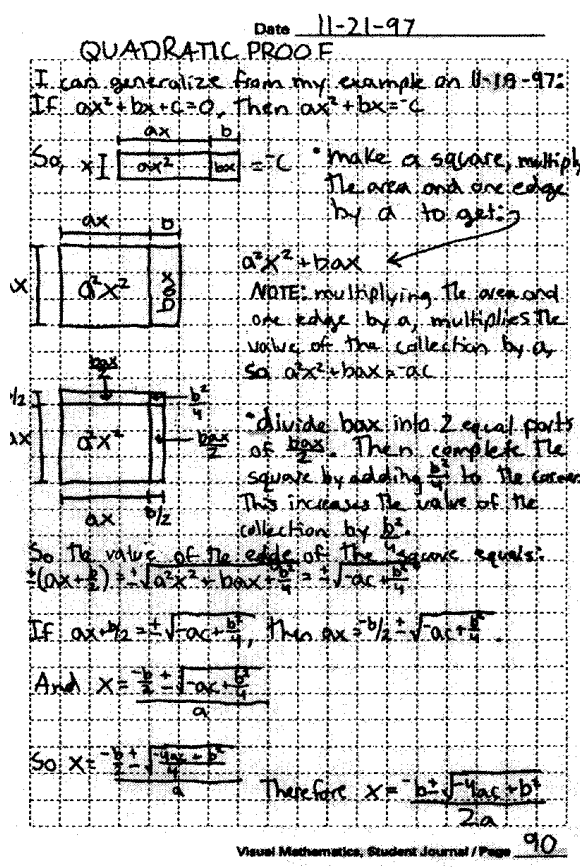 Date 11-21-97
QUADRATIC PROOF
I can generalize from my example on 11-18-97:
If ax²+bx+c=0, then ax²+bx=⁻c
ax b
So, x ax² bx = ⁻c • make a square, multiply
the area and one edge
by a to get:
ax b
a²x²+bax
ax a²x² bax
NOTE: multiplying the area and
one edge by a, multiplies the
value of the collection by a,
so a²x²+bax=⁻ac
bax/2
b/2 b²/4
ax a²x² bax/2
ax b/2
• divide bax into 2 equal parts
of bax/2. Then complete the
square by adding b²/4 to the corner.
This increases the value of the
collection by b²/4.
So the value of the edge of the square equals:
±(ax+b/2)=±√(a²x²+bax+b²/4)=±√(⁻ac+b²/4)
If ax+b/2=±√(⁻ac+b²/4), then ax=⁻b/2±√(⁻ac+b²/4).
And x=(⁻b/2±√(⁻ac+b²/4))/a
So x=(⁻b/2±√((⁻4ac+b²)/4))/a
Therefore x=(⁻b±√(⁻4ac+b²))/2a
Visual Mathematics, Student Journal / Page 90